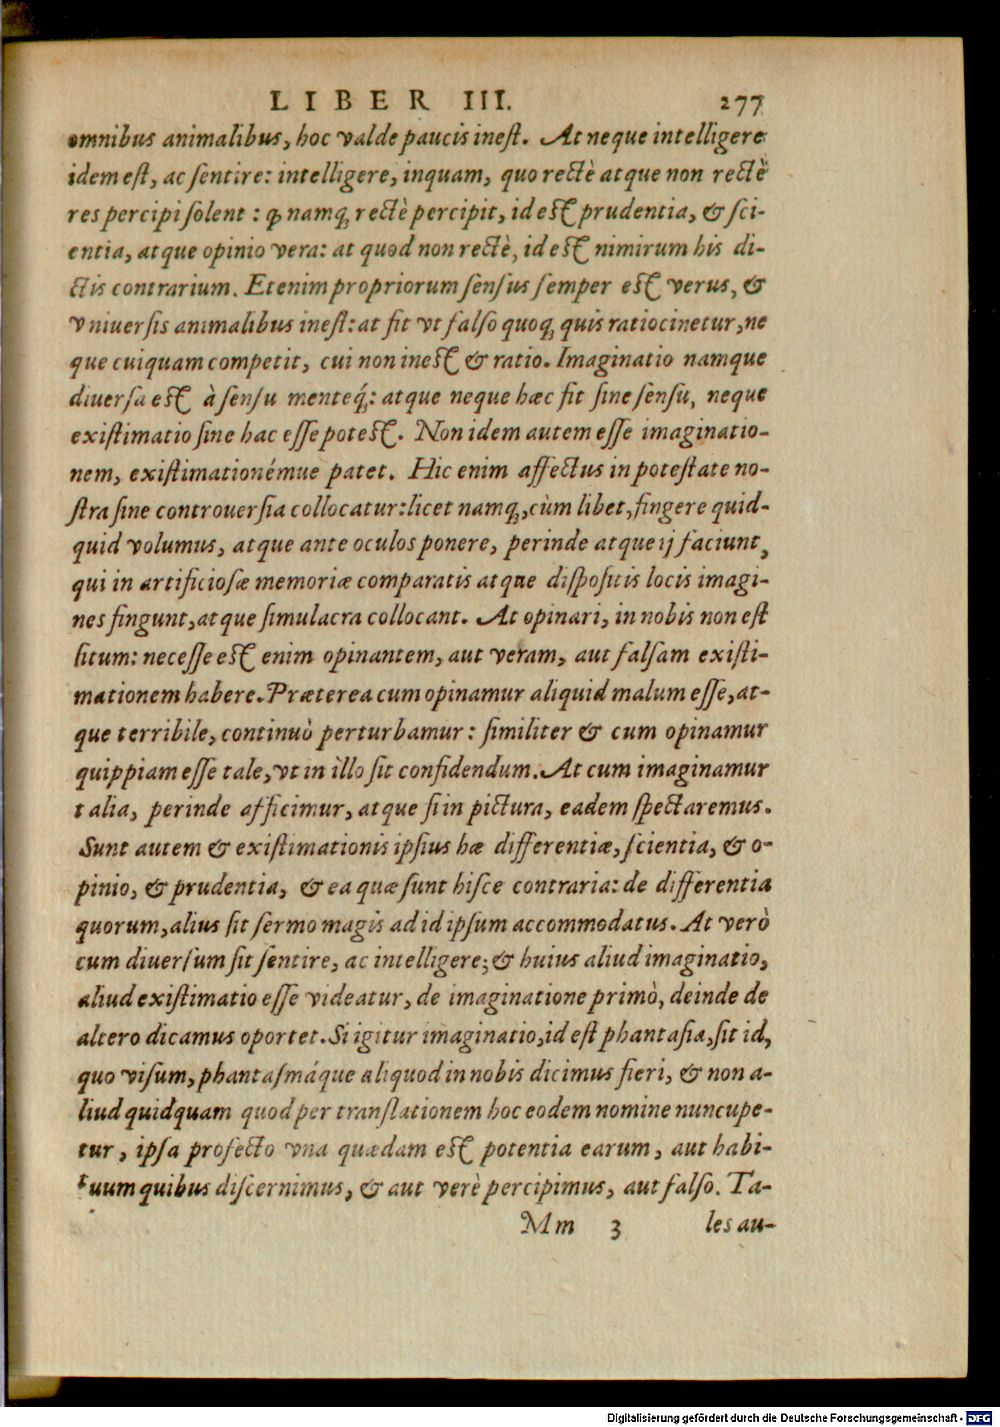 LIBER III. 277
omnibus animalibus, hoc valde paucis inest. At neque intelligere
idem est, ac sentire: intelligere, inquam, quo rectè atque non rectè
res percipi solent: ꝙ namq́; rectè percipit, id est prudentia, & sci-
entia, atque opinio vera: at quod non rectè, id est nimirum his di-
ctis contrarium. Etenim propriorum sensus semper est verus, &
vniuersis animalibus inest: at fit vt falso quoq; quis ratiocinetur, ne
que cuiquam competit, cui non inest & ratio. Imaginatio namque
diuersa est à sensu menteq́;: atque neque hæc fit sine sensu, neque
existimatio sine hac esse potest. Non idem autem esse imaginatio-
nem, existimationémue patet. Hic enim affectus in potestate no-
stra sine controuersia collocatur: licet namq;, cùm libet, fingere quid-
quid volumus, atque ante oculos ponere, perinde atque ij faciunt,
qui in artificiosæ memoriæ comparatis atque dispositis locis imagi-
nes fingunt, atque simulacra collocant. At opinari, in nobis non est
situm: necesse est enim opinantem, aut veram, aut falsam existi-
mationem habere. Præterea cum opinamur aliquid malum esse, at-
que terribile, continuò perturbamur: similiter & cum opinamur
quippiam esse tale, vt in illo sit confidendum. At cum imaginamur
talia, perinde afficimur, atque si in pictura, eadem spectaremus.
Sunt autem & existimationis ipsius hæ differentiæ, scientia, & o-
pinio, & prudentia, & ea quæ sunt hisce contraria: de differentia
quorum, alius sit sermo magis ad id ipsum accommodatus. At verò
cum diuersum sit sentire, ac intelligere; & huius aliud imaginatio,
aliud existimatio esse videatur, de imaginatione primò, deinde de
altero dicamus oportet. Si igitur imaginatio, id est phantasia, sit id,
quo visum, phantasmáque aliquod in nobis dicimus fieri, & non a-
liud quidquam quod per translationem hoc eodem nomine nuncupe-
tur, ipsa profecto vna quædam est potentia earum, aut habi-
tuum quibus discernimus, & aut verè percipimus, aut falso. Ta-
Mm 3 les au-
Digitalisierung gefördert durch die Deutsche Forschungsgemeinschaft - DFG